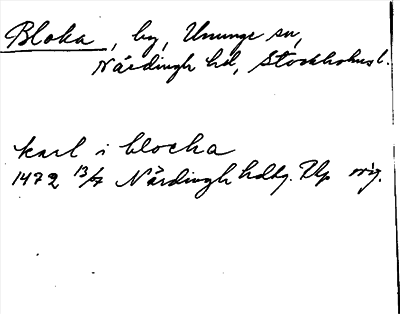 Bloka, by, Ununge sn,
Närdingh hd, Stockholms l.
karl i blocha
1472 13/7 Närdingh hdbg. Up orig.